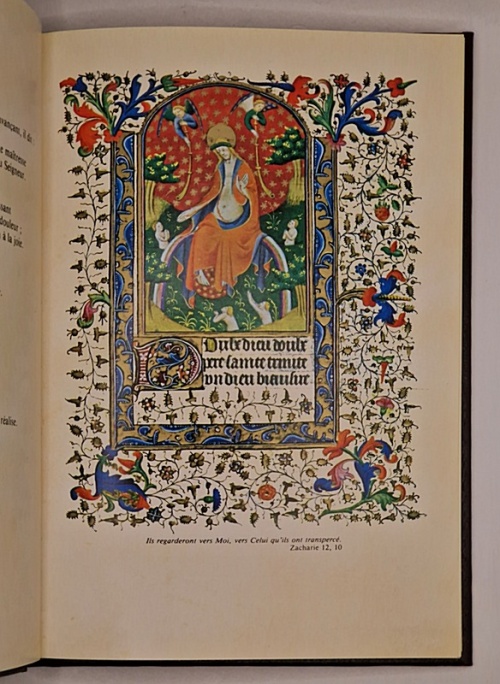 avançant, il dit
maîtresse
u Seigneur.
sant
douleur ;
à la joie.
réalise.
Doulx dieu doulx
pere sainte trinite
un dieu biensire
Ils regarderont vers Moi, vers Celui qu'ils ont transpercé.
Zacharie 12, 10